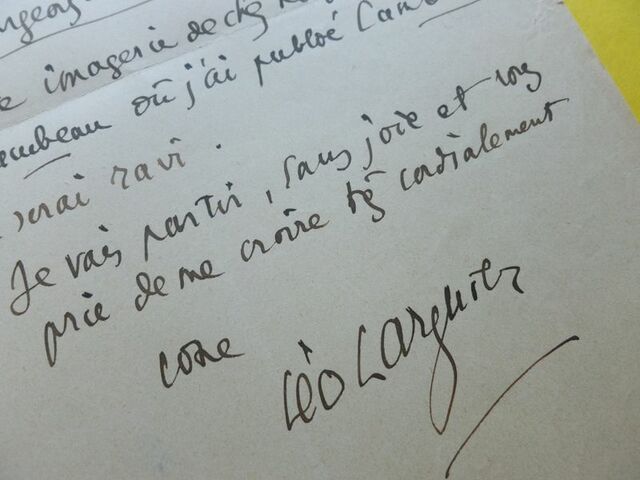 imagerie de chez
où j'ai publié
serai ravi.
Je vais partir, sans joie et vous
prie de me croire très cordialement
Léo Larguier